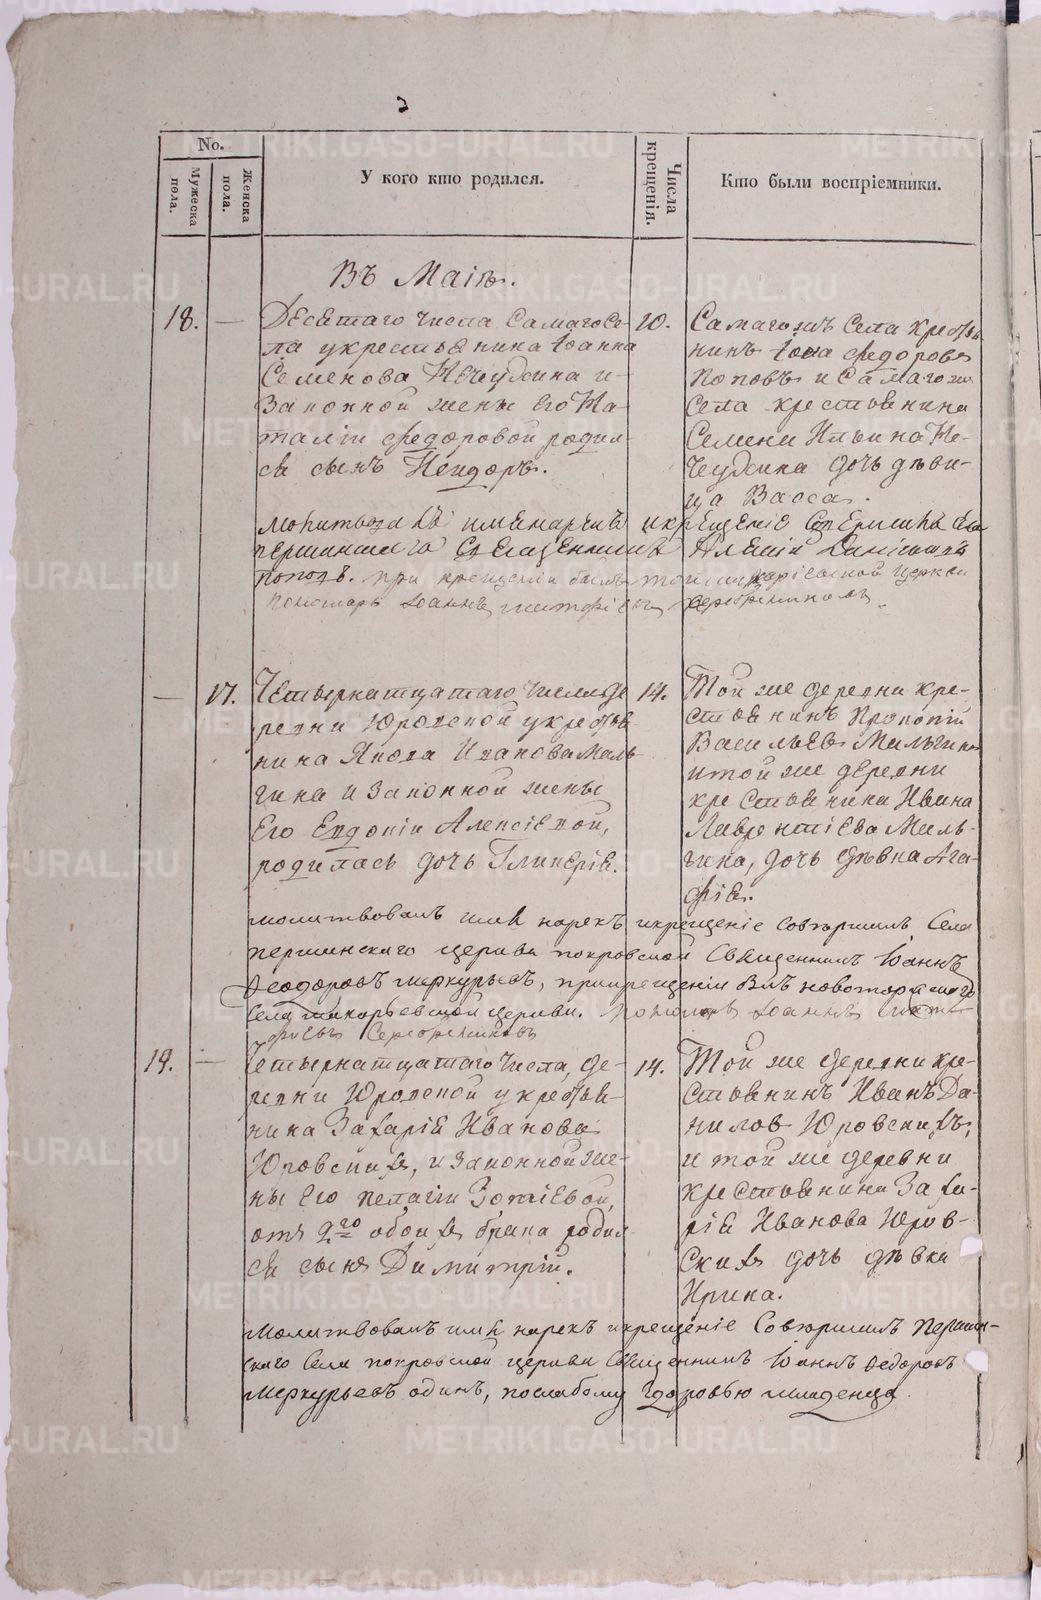 No.
Мужеска пола.
Женска пола.
У кого кто родился.
Числа крещенія.
Кто были воспріемники.
Въ Маіѣ.
18. —
Десятаго числа Самаго Се-
ла укрестьянина Іоанна
Семенова Нечудкина и
Законной жены Его На-
таліи Федоровой родил-
ся сынъ Исидоръ.
10.
Самагожъ Села кресть
нинъ Іона Федоровъ
Поповъ и Самагожъ
Села крестьянина
Семена Ильина Не-
чудкина дочь дѣви-
ца Васса.
молитвова къ имянарчиѣ икрещеніе Совершилъ Села
першинскаго Священникъ Алексій
поповъ. при крещеніи былъ тойже церкви
пономарь Іоаннъ Серебрениковъ
— 17.
Четырнатцатаго числа де
ревни Юровской укрестья
нина Якова Иванова Маль
гина и Законной жены
Его Евдокіи Алексіевой,
родилась дочь Гликерія.
14.
Той же деревни кре-
стьянинъ Прокопій
Васильевъ Мальгинъ
итой же деревни
крестьянина Ивана
Лаврентіева Маль-
гина, дочь дѣвка Ага-
фія.
молитвовалъ имя нарекъ икрещеніе Совѣршилъ Села
першинскаго церкви покровской Священникъ Іоаннъ
Феодоровъ меркурьевъ, прикрещеніи былъ
Села макарьевской церкви. пономарь Іоаннъ
Серебрениковъ
19. —
Четырнатцатаго числа, де-
ревни Юровской укрестья-
нина Захарія Иванова
Юровскихъ, и законной же-
ны Его пелагіи Зотіевой,
отъ 2го обоихъ брака родил-
ся сынъ Димитрій.
14.
Той же деревни кре-
стьянинъ Иванъ Да-
ниловъ Юровскихъ,
и той же деревни
крестьянина Заха-
рія Иванова Юров-
скихъ дочь дѣвка
Ирина.
Молитвовалъ имя нарекъ икрещеніе Совѣршилъ Першин-
скаго Села покровской церкви Священникъ Іоаннъ Федоровъ
Меркурьевъ одинъ, послабому здоровью младенца.
METRIKI.GASO-URAL.RU